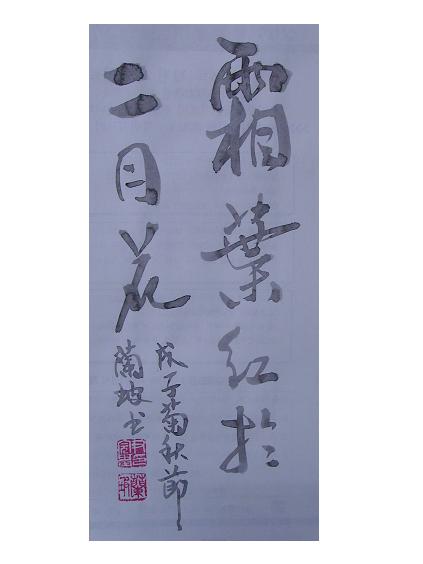 霜葉紅於
二月花
戊子菊秋節
蘭坡书